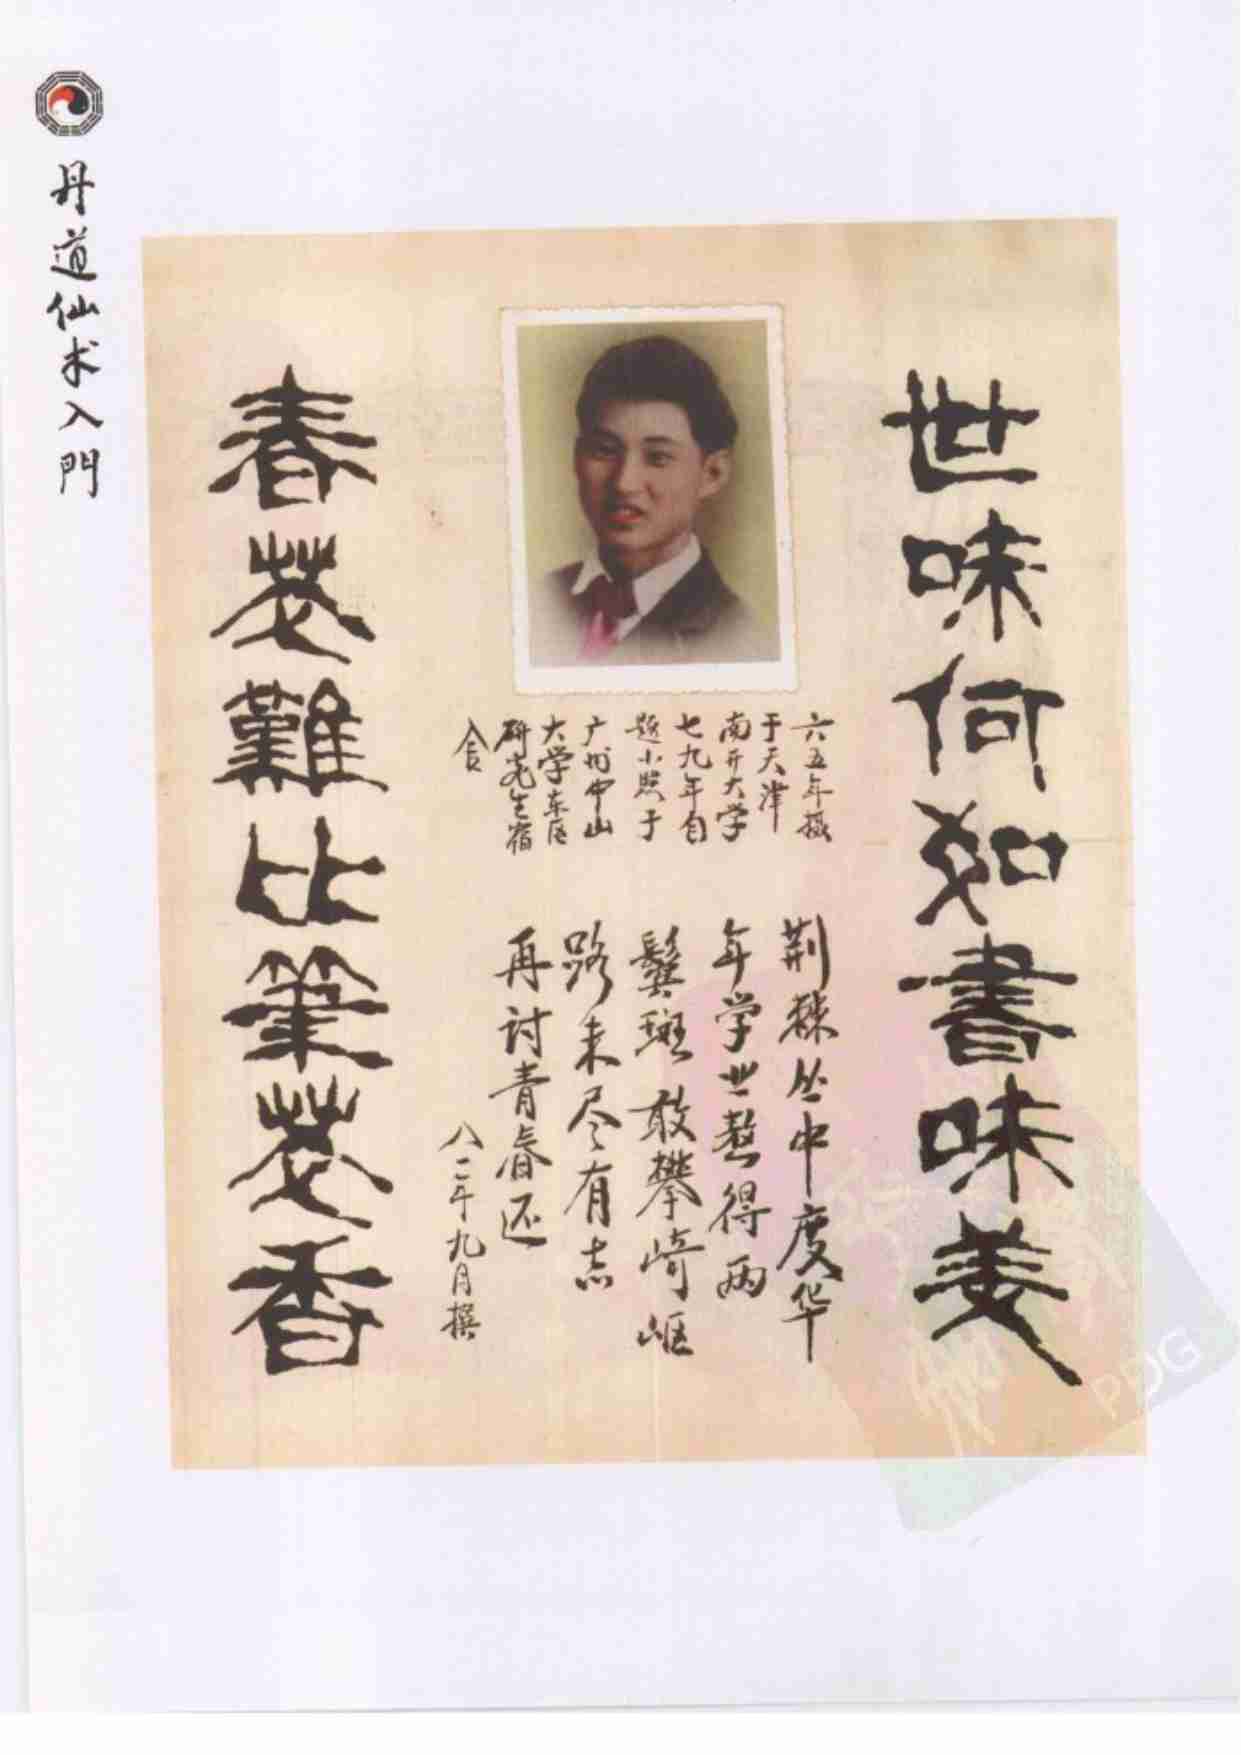 丹道仙术入門
世味何如書味美
春花難比筆花香
六五年摄
于天津
南开大学
七九年自
题小照于
广州中山
大学东区
研究生宿
舍
荆棘丛中度华
年学业熬得两
鬓斑敢攀崎岖
路未尽有志
再讨青春还
八二年九月撰
PDG